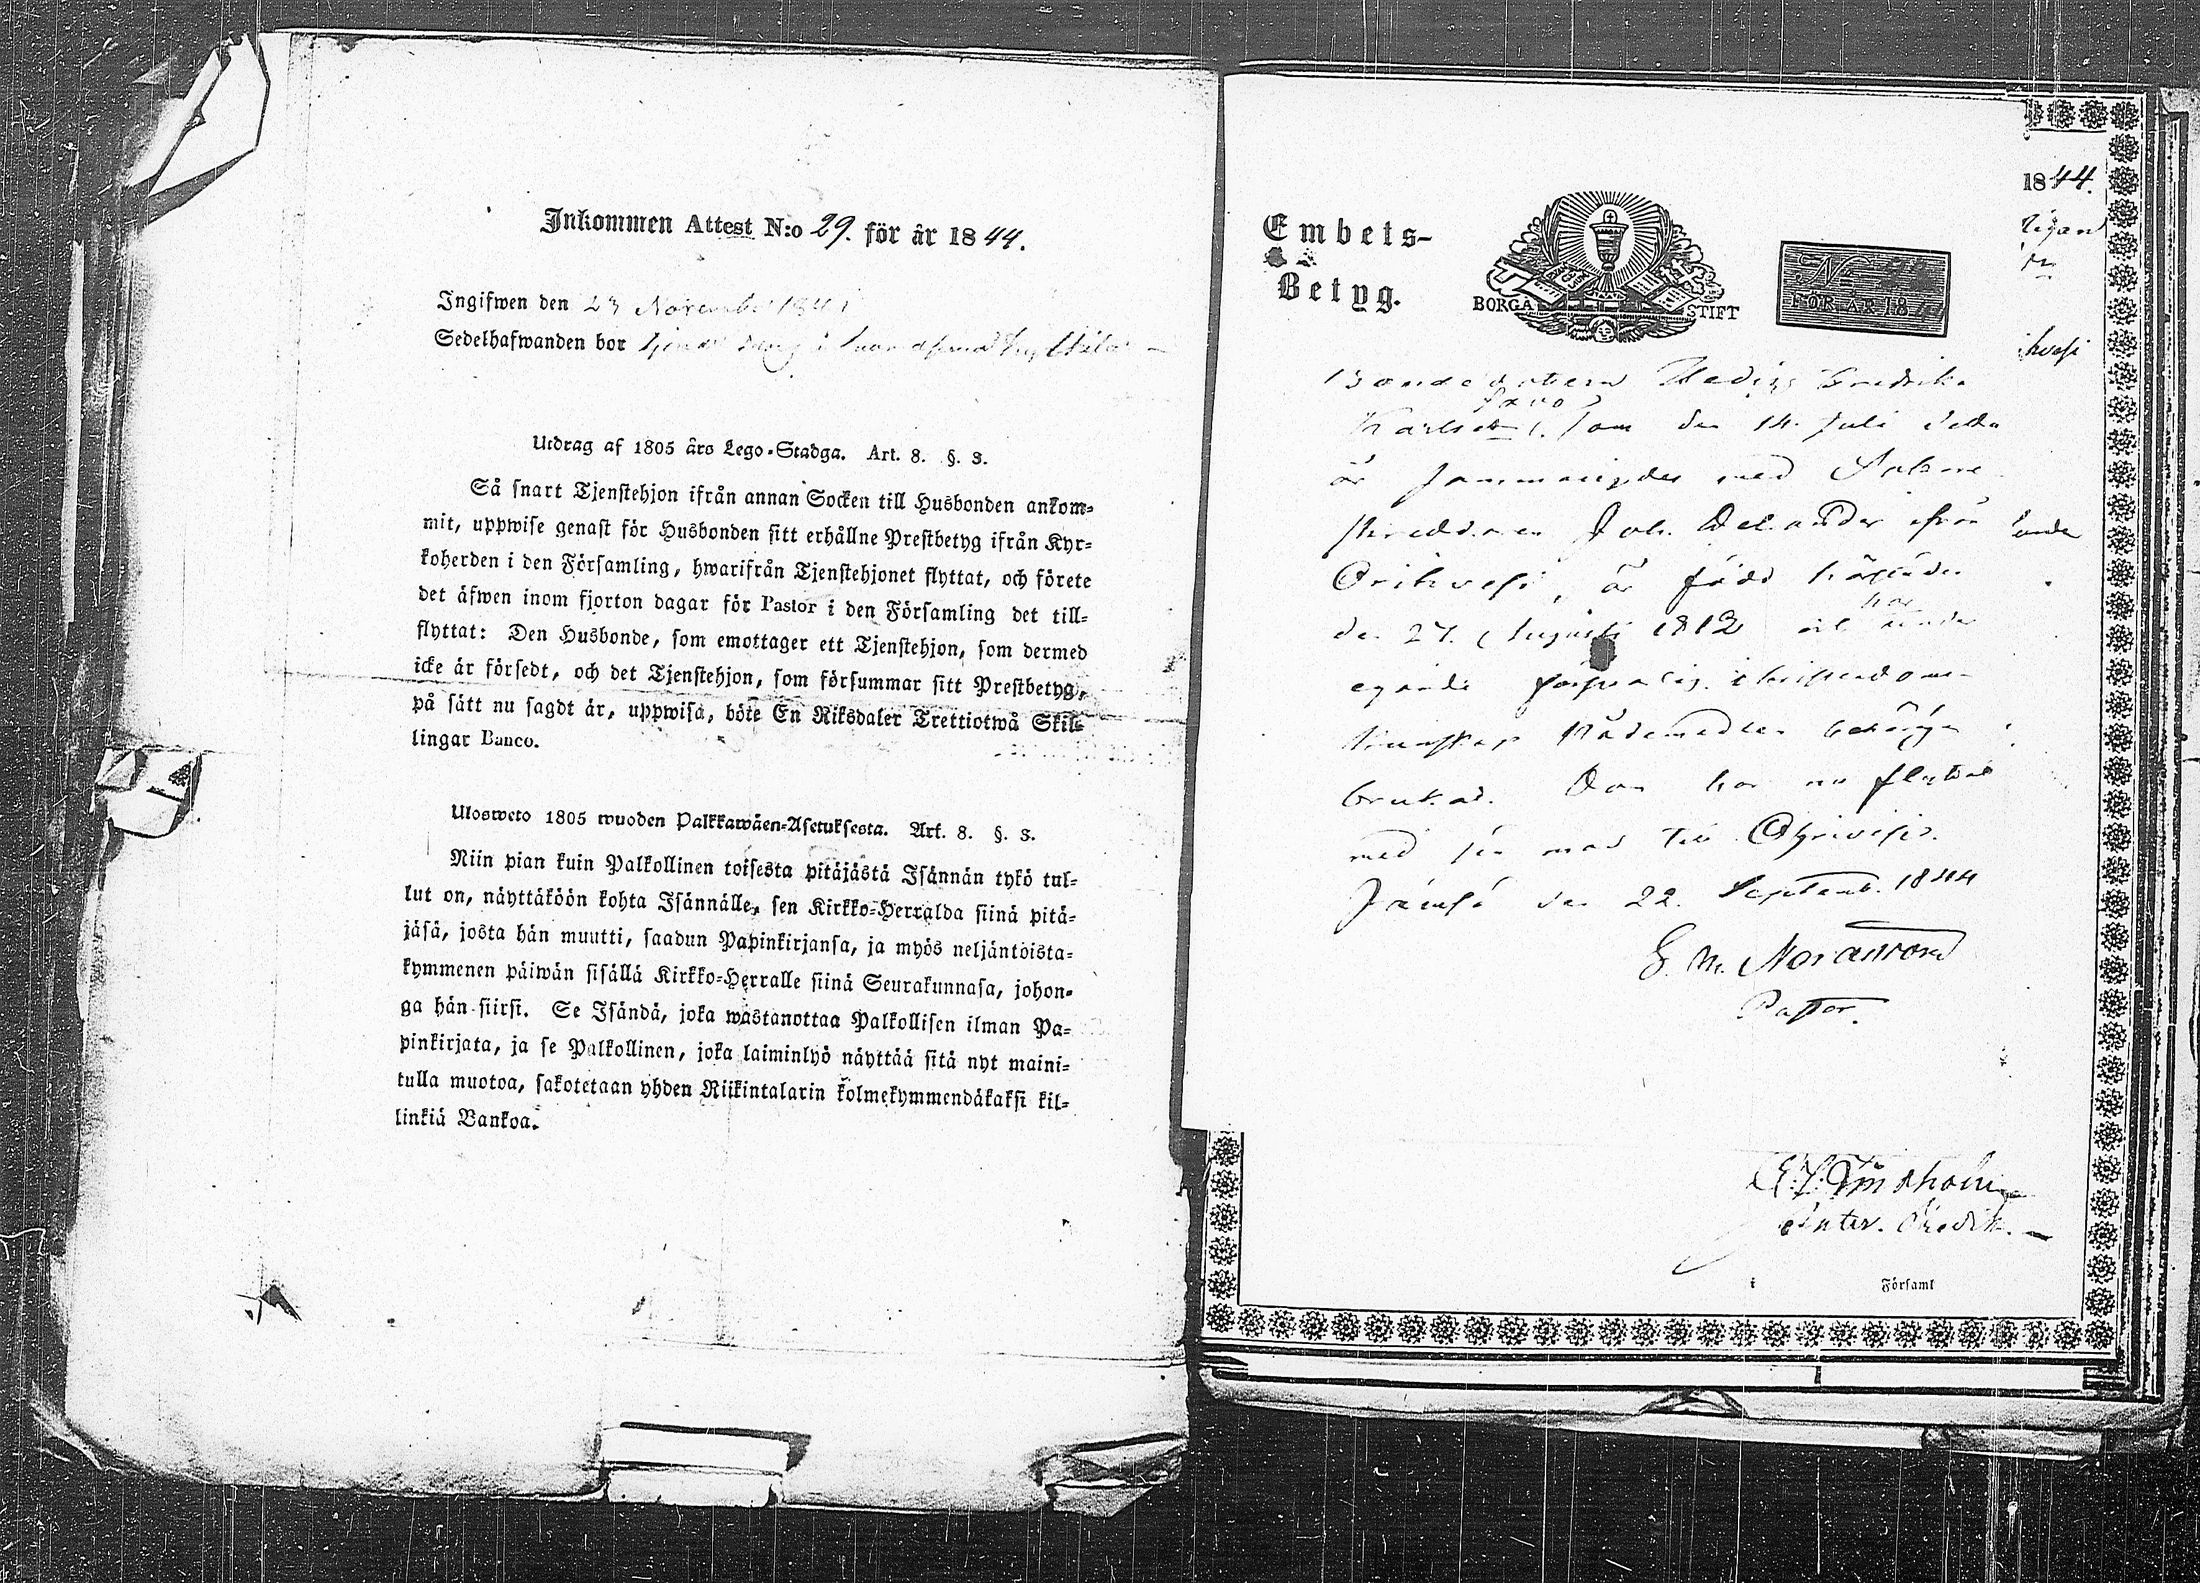 Inkommen Attest N:o 29. för år 1844.
Ingifwen den 23 November 1844
Sedelhafwanden bor
Utdrag af 1805 års Lego-Stadga. Art. 8. §. 3.
Så snart Tjenstehjon ifrån annan Socken till Husbonden ankom-
mit, uppwise genast för Husbonden sitt erhållne Prestbetyg ifrån Kyr-
koherden i den Församling, hwarifrån Tjenstehjonet flyttat, och förete
det äfwen inom fjorton dagar för Pastor i den Församling det till-
flyttat: Den Husbonde, som emottager ett Tjenstehjon, som dermed
icke är försedt, och det Tjenstehjon, som försummar sitt Prestbetyg,
på sätt nu sagdt är, uppwisa, böte En Riksdaler Trettiotwå Skil-
lingar Banco.
Ulosweto 1805 wuoden Palkkawäen-Asetuksesta. Art. 8. §. 3.
Niin pian kuin Palkollinen toisesta pitäjästä Isännän tykö tul-
lut on, näyttäköön kohta Isännälle, sen Kirkko-Herralda siinä pitä-
jäsä, josta hän muutti, saadun Papinkirjansa, ja myös neljäntoista-
kymmenen päiwän sisällä Kirkko-Herralle siinä Seurakunnasa, johon-
ga hän siirsi. Se Isändä, joka wastanottaa Palkollisen ilman Pa-
pinkirjata, ja se Palkollinen, joka laiminlyö näyttää sitä nyt maini-
tulla muotoa, sakotetaan yhden Riikintalarin kolmekymmendäkaksi kil-
linkiä Bankoa.
Embets-
Betyg.
BORGÅ STIFT
N
FÖR ÅR 18
1844.
Bondedottern Hedvig Fredrika
Karlsdr. som den 14. Juli detta
år sammanvigdes med Sockne
skreddaren Joh. Delander ifrån
Orihvesi, är född härstädes
den 27. Augusti 1812
har
egande christendoms
kunskap Nådemedlen
brukat. Hon har nu flyttat
med sin man till Orivesi.
Jämsä den 22. Septemb. 1844
Pastor.
i Församl